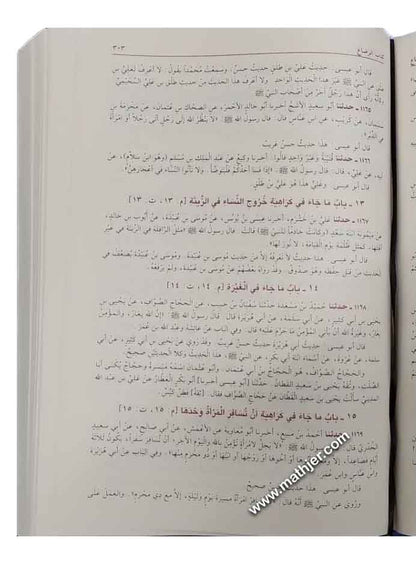 كتاب الرضاع
٣٠٣
قال أبو عيسى: حديث علي بن طلق حديث حسن. وسمعت محمدًا يقول: لا أعرف لعلي بن
طلق عن النبي ﷺ غير هذا الحديث الواحد. ولا أعرف هذا الحديث من حديث طلق بن علي السحيمي
وكأنه رأى أن هذا رجل آخر من أصحاب النبي ﷺ.
١١٦٥ - حدثنا أبو سعيد الأشج أخبرنا أبو خالد الأحمر، عن الضحاك بن عثمان، عن مخرمة بن
سليمان، عن كريب، عن ابن عباس قال: قال رسول الله ﷺ: «لا ينظر الله إلى رجل أتى رجلًا أو امرأة
في الدبر».
قال أبو عيسى: هذا حديث حسن غريب
١١٦٦ - حدثنا قتيبة وغير واحد قالوا: أخبرنا وكيع عن عبد الملك بن مسلم (وهو ابن سلام)، عن
أبيه، عن علي، قال: قال رسول الله ﷺ: «إذا فسا أحدكم فليتوضأ ولا تأتوا النساء في أعجازهن».
قال أبو عيسى: وعلي هذا هو علي بن طلق
١٣ - باب ما جاء في كراهية خروج النساء في الزينة [م ١٣، ت ١٣]
١١٦٧ - حدثنا علي بن خشرم، أخبرنا عيسى بن يونس، عن موسى بن عبيدة، عن أيوب بن خالد،
عن ميمونة ابنة سعد (وكانت خادمًا للنبي ﷺ) قالت: قال رسول الله ﷺ: «مثل الرافلة في الزينة في غير
أهلها، كمثل ظلمة يوم القيامة، لا نور لها».
قال أبو عيسى: هذا حديث لا نعرفه إلا من حديث موسى بن عبيدة. وموسى بن عبيدة يضعف في
الحديث من قبل حفظه وهو صدوق. وقد رواه بعضهم عن موسى بن عبيدة، ولم يرفعه.
١٤ - باب ما جاء في الغيرة [م ١٤، ت ١٤]
١١٦٨ - حدثنا حميد بن مسعدة حدثنا سفيان بن حبيب، عن الحجاج الصواف، عن يحيى بن
أبي كثير، عن أبي سلمة، عن أبي هريرة قال: قال رسول الله ﷺ: «إن الله يغار، والمؤمن
يغار، وغيرة الله أن يأتي المؤمن ما حرم عليه». قال: وفي الباب عن عائشة وعبد الله بن عمر.
قال أبو عيسى: حديث أبي هريرة حديث حسن غريب. وقد روي عن يحيى بن أبي كثير، عن أبي
سلمة، عن عروة، عن أسماء ابنة أبي بكر، عن النبي ﷺ، هذا الحديث وكلا الحديثين صحيح
والحجاج الصواف، هو الحجاج بن أبي عثمان. وأبو عثمان اسمه ميسرة وحجاج يكنى أبا
الصلت. وثقه يحيى بن سعيد القطان. حدثنا [أبو عيسى أخبرنا] أبو بكر العطار عن علي بن عبد الله
المديني سألت يحيى بن سعيد القطان عن حجاج الصواف فقال: [ثقة] فطن كيس.
١٥ - باب ما جاء في كراهية أن تسافر المرأة وحدها [م ١٥، ت ١٥]
١١٦٩ - حدثنا أحمد بن منيع، أخبرنا أبو معاوية عن الأعمش، عن أبي صالح، عن أبي سعيد
الخدري قال: قال رسول الله ﷺ: «لا يحل لامرأة تؤمن بالله واليوم الآخر، أن تسافر سفرًا، يكون ثلاثة
أيام فصاعدًا، إلا ومعها أبوها أو أخوها أو زوجها أو ابنها أو ذو محرم منها». وفي الباب عن أبي هريرة
وابن عباس وابن عمر.
قال أبو عيسى: هذا حديث حسن صحيح
وروي عن النبي ﷺ أنه قال: المرأة مسيرة يوم وليلة، إلا مع ذي محرم». والعمل على
www.mathjer.com